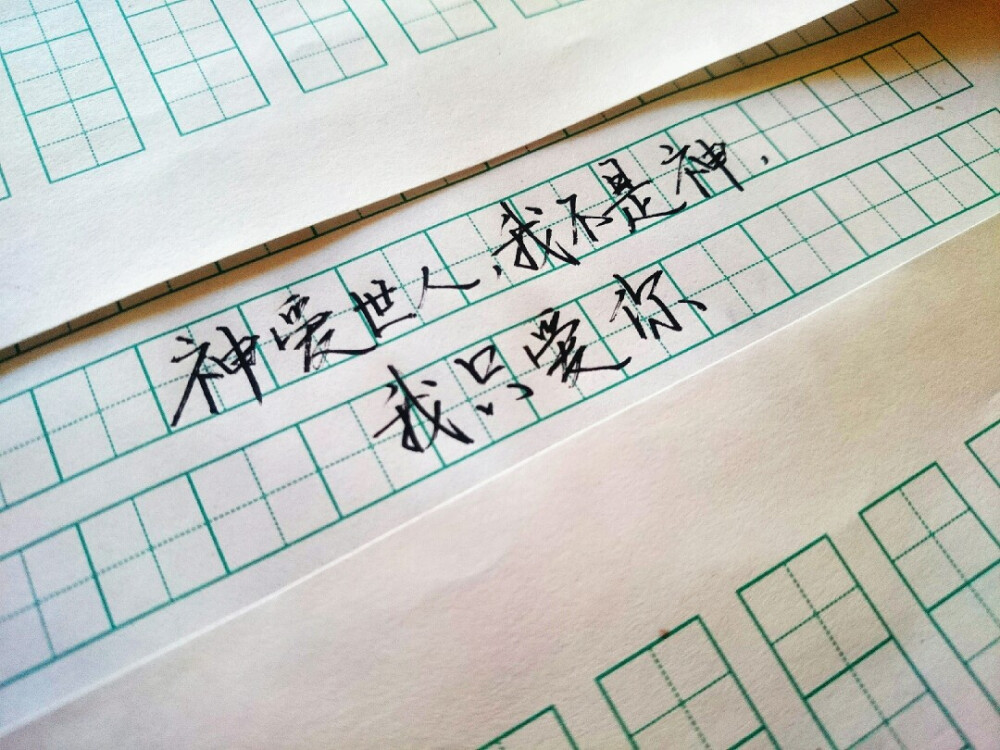 神爱世人,我不是神.
我只爱你